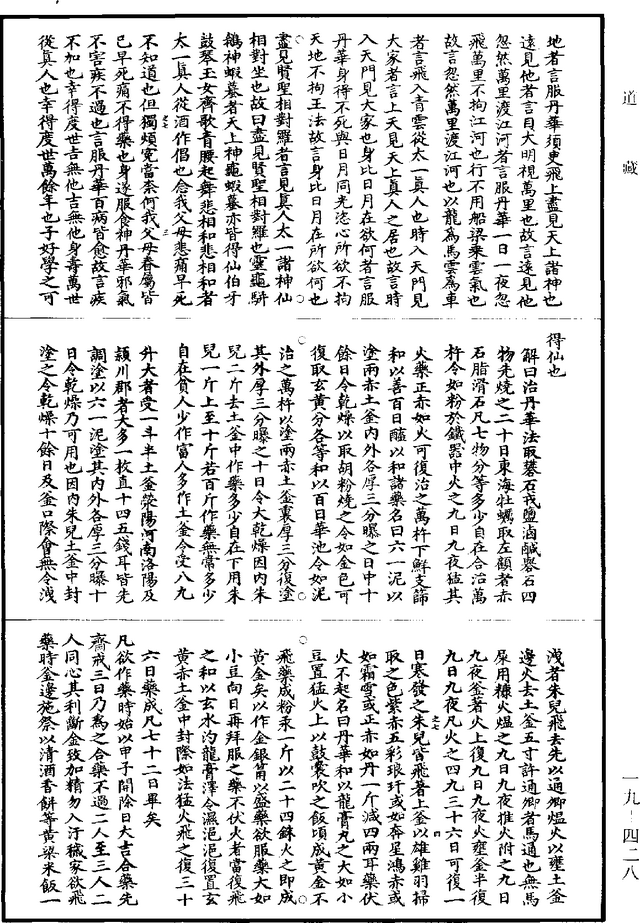 道藏
地者言服丹華須臾飛上盡見天上諸神也
遠見他者言目大明視萬里也故言遠見他
忽然萬里渡江河者言服丹華一日一夜忽
飛萬里不拘江河也行不用船梁乘雲氣也
故言忽然萬里渡江河也以龍為馬雲為車
者言飛入青雲從太一真人也時入天門見
大家者言上天見天上真人之居也故言時
入天門見大家也身比日月在欲何者言服
丹華身得不死與日月同光恣心所欲不拘
天地不拘王法故言身比日月在所欲何也
盡見賢聖相對羅者言見真人太一諸神仙
相對坐也故曰盡見賢聖相對羅也靈龜駢
鶴神蝦蟇者天上神龜蝦蟇亦皆得仙伯牙
鼓琴玉女齊歌青腰起舞悲相和悲相和者
太一真人從酒作倡也念我父母悲痛早死
不知道也但獨煩冤當柰何我父母眷屬皆
已早死痛不得藥也身遂服食神丹華邪氣
不害疾不過也言服丹華百病皆愈故言疾
不加也幸得度世吉無他吉無他身壽萬世
從真人也幸得度世萬餘年也子好學之可
得仙也
解曰治丹華法取礬石戎鹽滷鹹礜石四
物先燒之二十日東海牡蠣取左顧者赤
石脂滑石凡七物分等多少自在合治萬
杵令如粉於鐵器中火之九日九夜猛其
火藥正赤如火可復治之萬杵下鮮支篩
和以善百日醯以和諸藥名曰六一泥以
塗兩赤土釜內外各厚三分曝之日中十
餘日令乾燥以取胡粉燒之令如金色可
復取玄黃分各等和以百日華池令如泥
治之萬杵以塗兩赤土釜裏厚三分復塗
其外厚三分曝之十日令大乾燥因內朱
兒二斤去土釜中作藥多少自在下用朱
兒一斤上至十斤若百斤作藥無常多少
自在貧人少作富人多作土釜令受八九
升大者受一斗半土釜滎陽河南洛陽及
潁川郡者大多一枚直十四五錢耳皆先
調塗以六一泥塗其內外各厚三分曝十
日令乾燥乃可用也因內朱兒土釜中封
塗之令乾燥十餘日及釜口際會無令洩
洩者朱兒飛去先以通卿熅火以壅土釜
邊火去土釜五寸許通卿者馬通也無馬
屎用糠火熅之九日九夜推火附之九日
九夜釜著火上復九日九夜火壅釜半復
九日九夜凡火之四九三十六日可復一
日寒發之朱兒皆飛著上釜以雄雞羽掃
取之色紫赤五彩琅玕或如奔星鴻赤或
如霜雪或正赤如丹一斤減四兩耳藥伏
火不起名曰丹華和以龍膏丸之大如小
豆置猛火上以鼓橐吹之飯頃成黃金不
飛藥成粉汞一斤以二十四銖火之即成
黃金矣以作金銀筩以盛藥欲服藥大如
小豆向日再拜服之藥不伏火者當復飛
之和以玄水沟龍膏澤令濕浥浥復置玄
黃赤土釜中封際如法猛火飛之復三十
六日藥成凡七十二日畢矣
凡欲作藥時始以甲子開除日大吉合藥先
齋戒三日乃為之合藥不過二人至三人二
人同心其利斷金致加精勿入汙穢家欲飛
藥時釜邊施祭以清酒香餅等黃粱米飯一
一九—四二八